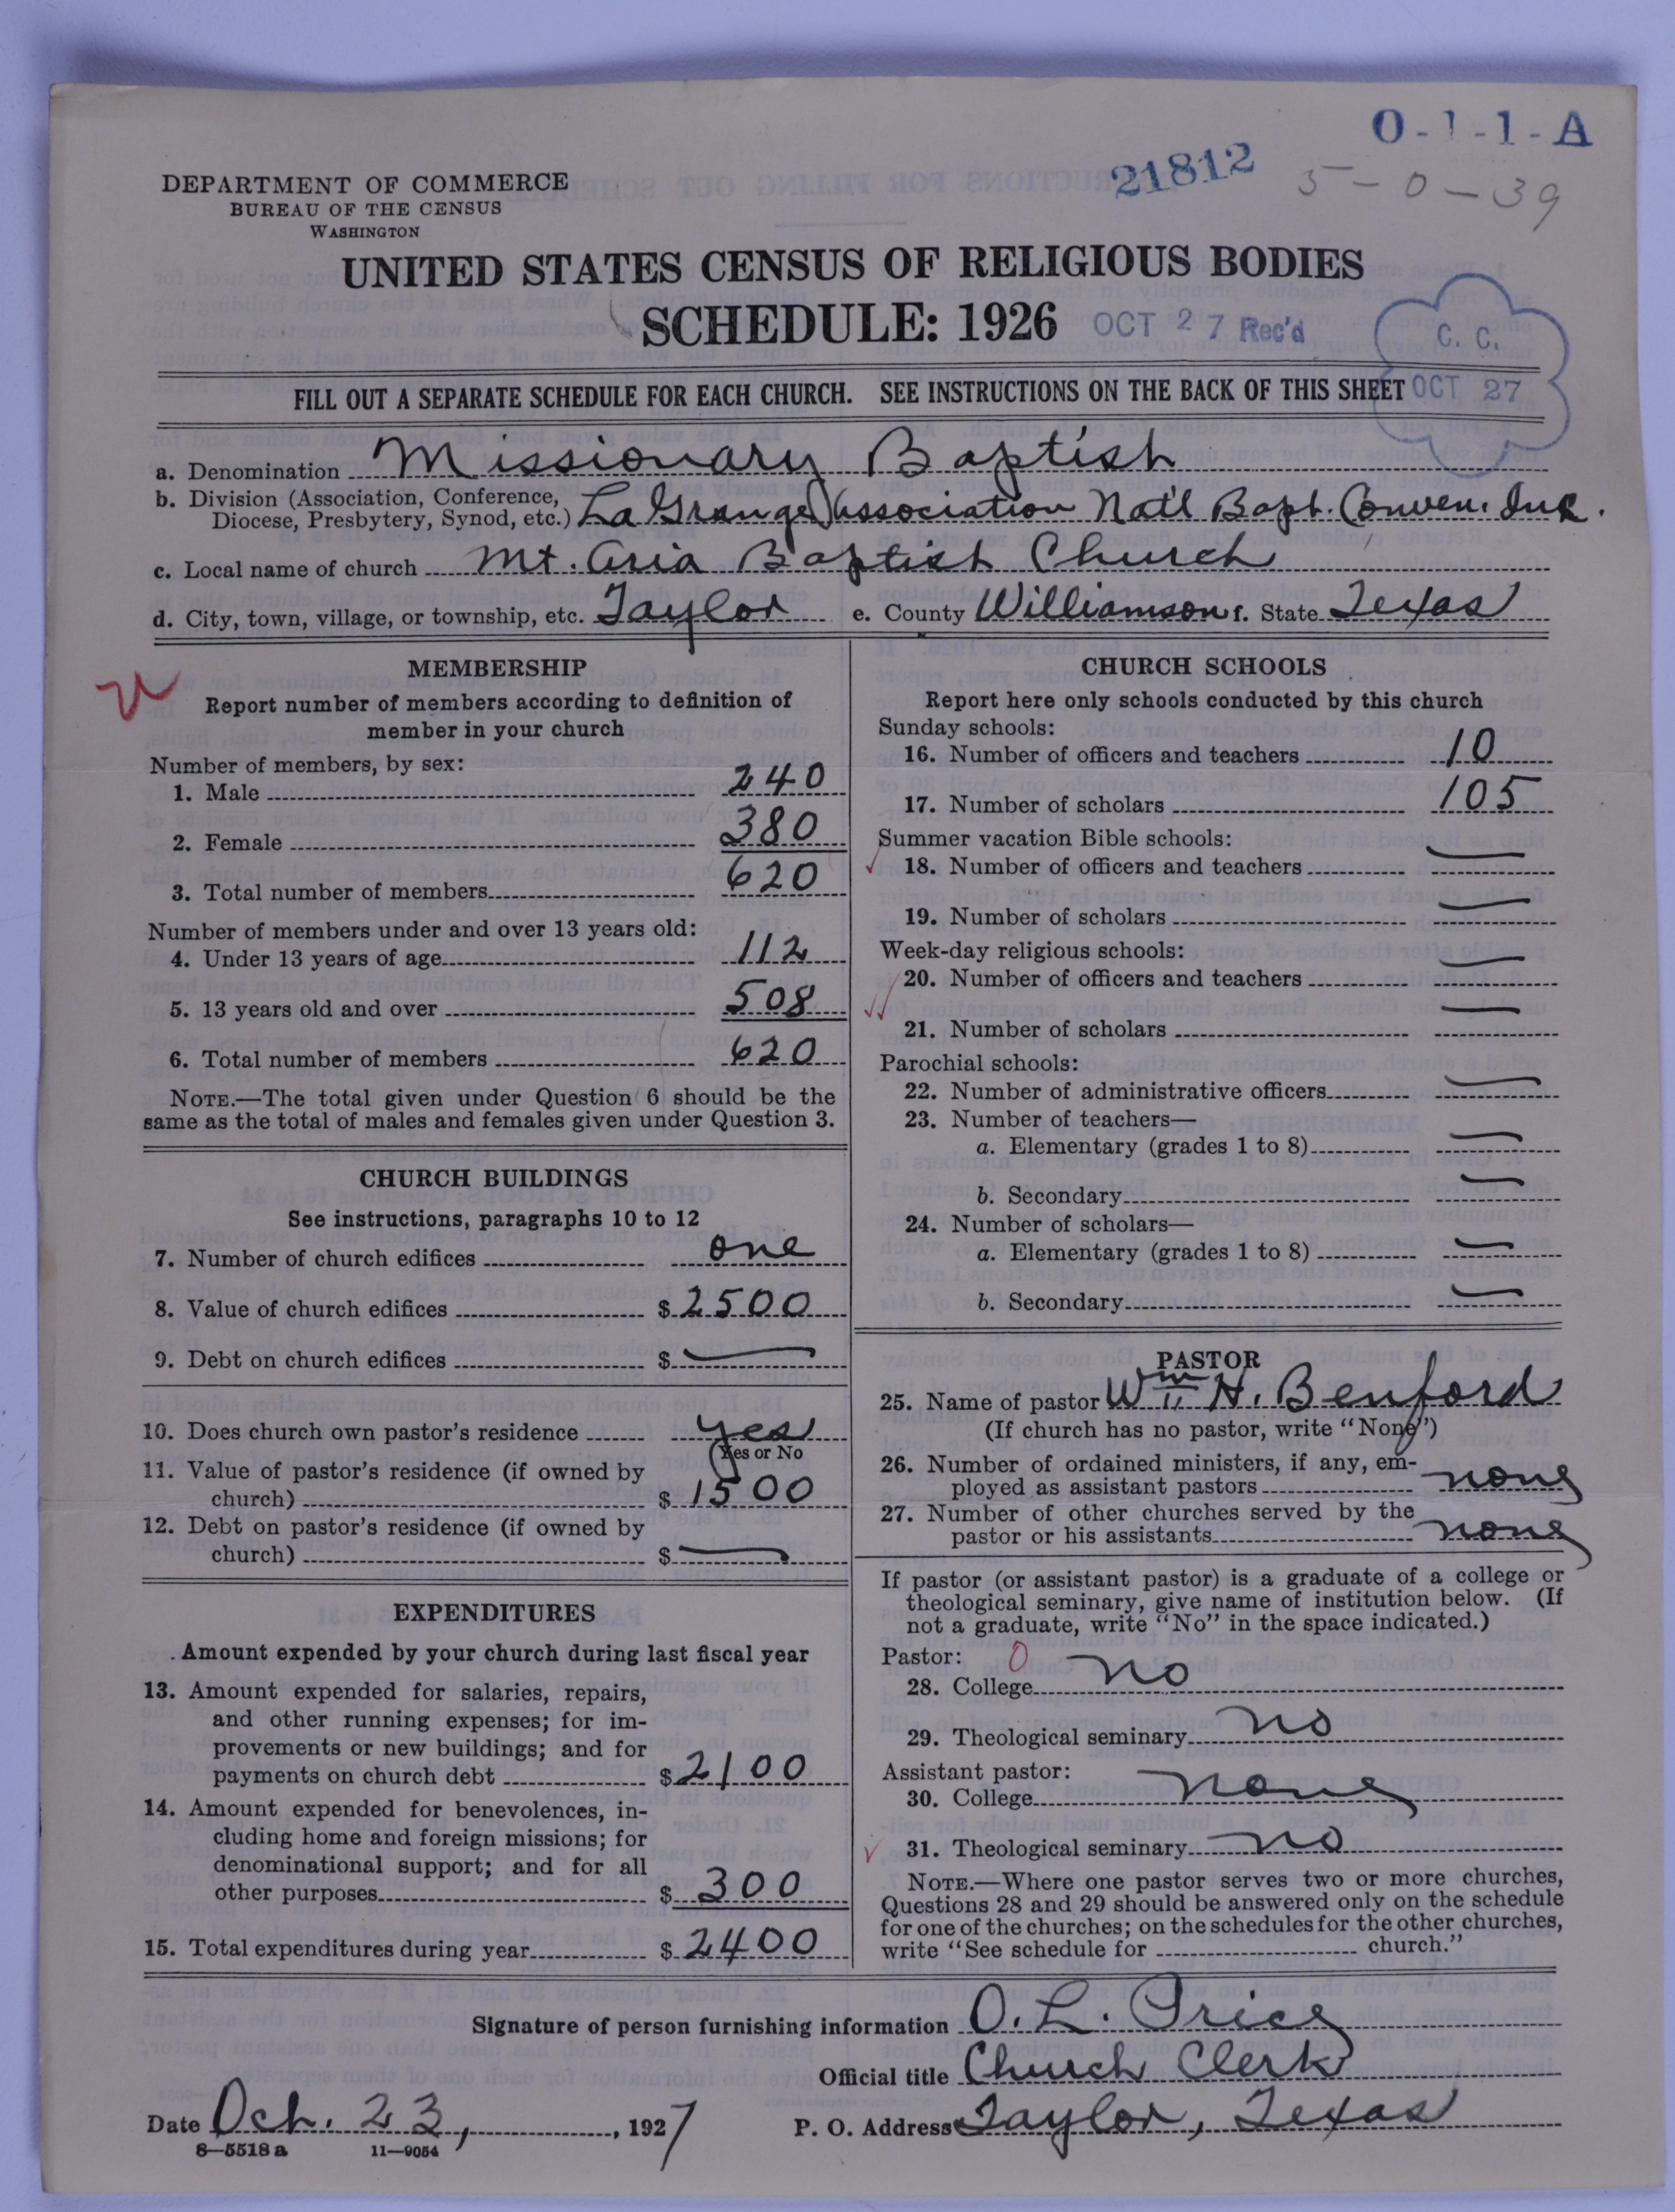 O-1-1-A
21812
5-0-39
DEPARTMENT OF COMMERCE
BUREAU OF THE CENSUS
WASHINGTON
UNITED STATES CENSUS OF RELIGIOUS BODIES
SCHEDULE: 1926
OCT 27 Rec'd
C. C.
OCT 27
FILL OUT A SEPARATE SCHEDULE FOR EACH CHURCH. SEE INSTRUCTIONS ON THE BACK OF THIS SHEET
a. Denomination Missionary Baptist
b. Division (Association, Conference, Diocese, Presbytery, Synod, etc.) La Grange Association Nat'l Bapt. Conven. Inc.
c. Local name of church Mt. Aria Baptist Church
d. City, town, village, or township, etc. Taylor e. County Williamson f. State Texas
MEMBERSHIP
Report number of members according to definition of
member in your church
Number of members, by sex:
1. Male 240
2. Female 380
3. Total number of members 620
Number of members under and over 13 years old:
4. Under 13 years of age 112
5. 13 years old and over 508
6. Total number of members 620
NOTE.—The total given under Question 6 should be the
same as the total of males and females given under Question 3.
CHURCH BUILDINGS
See instructions, paragraphs 10 to 12
7. Number of church edifices one
8. Value of church edifices $ 2500
9. Debt on church edifices $ —
10. Does church own pastor's residence yes
(Yes or No
11. Value of pastor's residence (if owned by
church) $ 1500
12. Debt on pastor's residence (if owned by
church) $ —
EXPENDITURES
Amount expended by your church during last fiscal year
13. Amount expended for salaries, repairs,
and other running expenses; for im-
provements or new buildings; and for
payments on church debt $ 2100
14. Amount expended for benevolences, in-
cluding home and foreign missions; for
denominational support; and for all
other purposes $ 300
15. Total expenditures during year $ 2400
CHURCH SCHOOLS
Report here only schools conducted by this church
Sunday schools:
16. Number of officers and teachers 10
17. Number of scholars 105
Summer vacation Bible schools:
18. Number of officers and teachers —
19. Number of scholars —
Week-day religious schools:
20. Number of officers and teachers —
21. Number of scholars —
Parochial schools:
22. Number of administrative officers —
23. Number of teachers—
a. Elementary (grades 1 to 8) —
b. Secondary —
24. Number of scholars—
a. Elementary (grades 1 to 8) —
b. Secondary —
PASTOR
25. Name of pastor Wm H. Benford
(If church has no pastor, write "None")
26. Number of ordained ministers, if any, em-
ployed as assistant pastors none
27. Number of other churches served by the
pastor or his assistants none
If pastor (or assistant pastor) is a graduate of a college or
theological seminary, give name of institution below. (If
not a graduate, write "No" in the space indicated.)
Pastor: 0
28. College no
29. Theological seminary no
Assistant pastor:
30. College none
31. Theological seminary no
NOTE.—Where one pastor serves two or more churches,
Questions 28 and 29 should be answered only on the schedule
for one of the churches; on the schedules for the other churches,
write "See schedule for church."
Signature of person furnishing information O. L. Price
Official title Church Clerk
Date Oct. 23, , 1927 P. O. Address Taylor, Texas
8—5518 a 11—9054